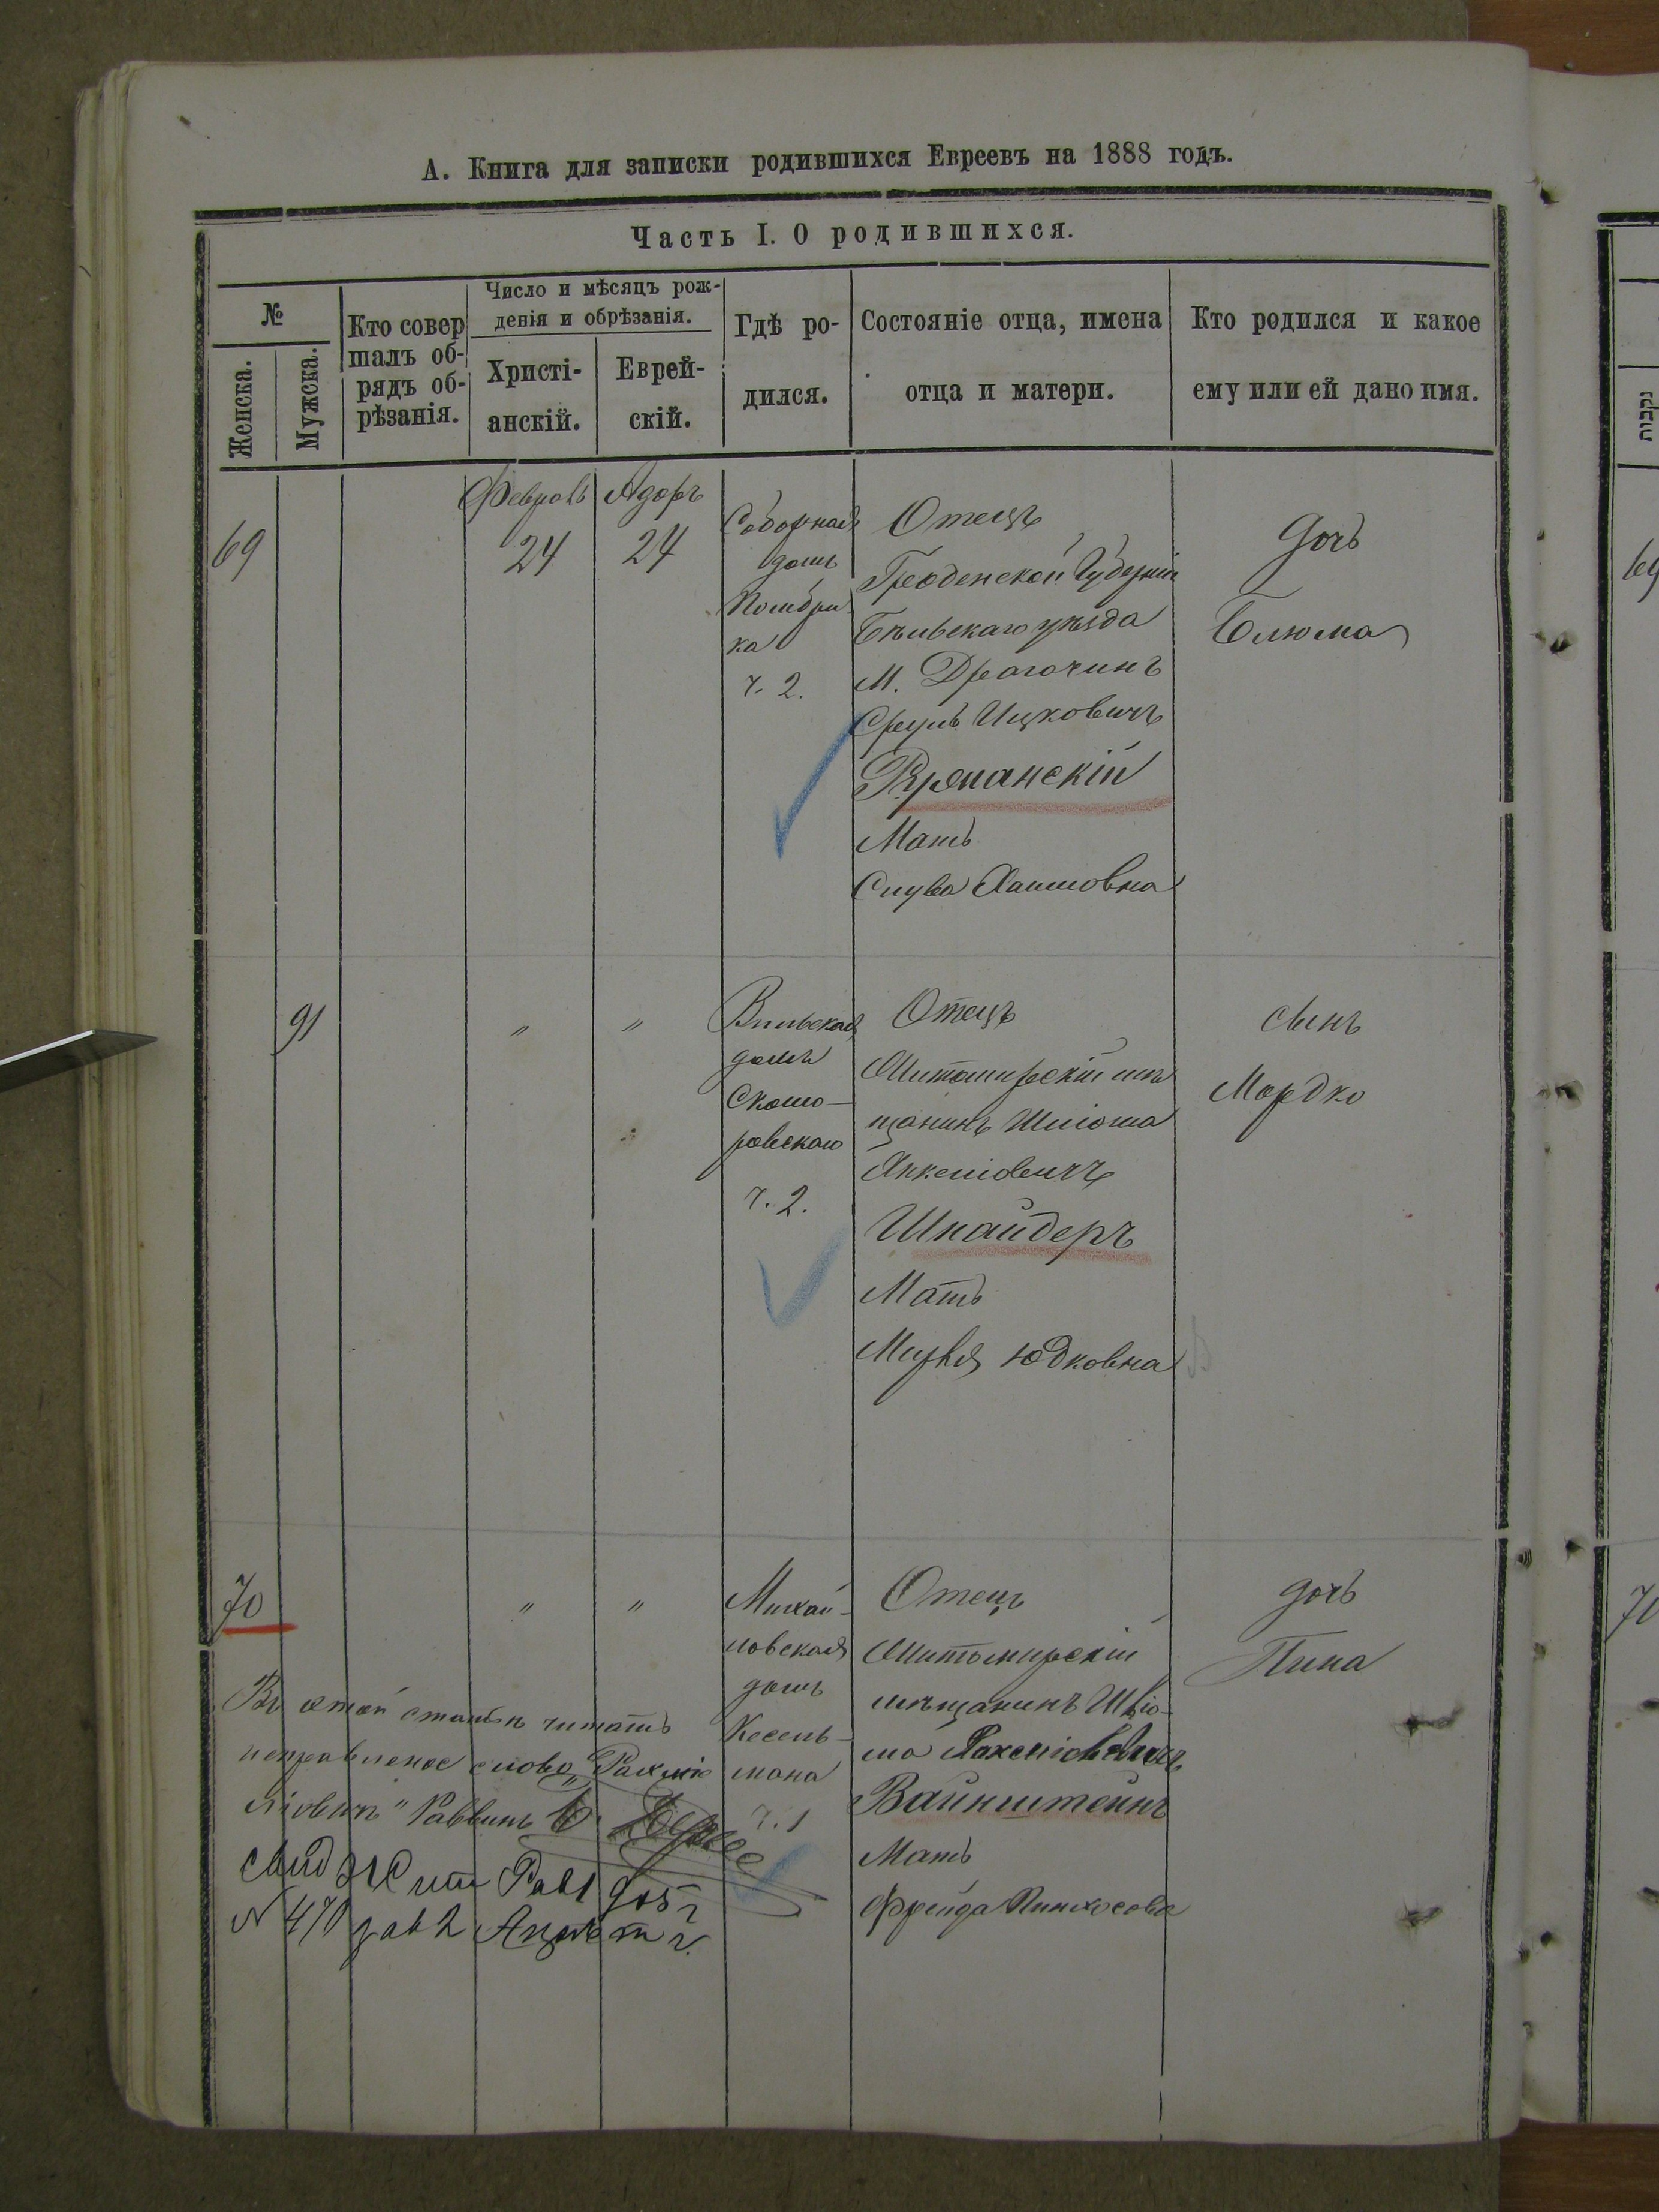 А. Книга для записки родившихся Евреевъ на 1888 годъ.
Часть I. О родившихся.
№
Женска.
Мужска.
Кто совер
шалъ об-
рядъ об-
рѣзанія.
Число и мѣсяцъ рож-
денія и обрѣзанія.
Христі-
анскій.
Еврей-
скій.
Гдѣ ро-
дился.
Состояніе отца, имена
отца и матери.
Кто родился и какое
ему или ей дано имя.
69
Февраль
24
Адаръ
24
Соборная
домъ
ка
ч. 2.
Отецъ
Гродненской Губерніи
Бѣльскаго уѣзда
М. Драгочинъ
Сруль Ицковичъ
Мать
Хаимовна
Дочь
Блюма
91
"
"
Вильская
домъ
Скомо-
ровскаго
ч. 2.
Отецъ
Житомирскій мѣ
щанинъ Шліома
Янкеліовичъ
Шнайдеръ
Мать
Юдковна
сынъ
Мордко
70
"
"
Михай-
ловская
домъ
Кесель-
мана
ч. 1
Отецъ
Житомирскій
мѣщанинъ Шліо-
ма
Вайнштейнъ
Мать
Фрейда Пинхосовна
дочь
Въ этой статьѣ читать
исправленное слово „Рахмі
ліовичъ" Раввинъ
N 470
נקבות
69
70